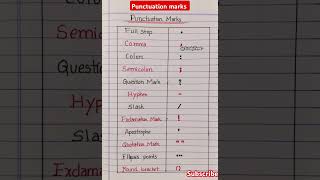 Punctuation marks
Punctuation Marks
Full Stop .
Comma ,
Colon :
Semicolon ;
Question Mark ?
Hyphen -
Slash /
Exclamation Mark !
Apostrophe '
Quotation Mark " "
Ellipsis points ...
Round bracket ()
Subscribe
Question
Hyph
Slas
Exclama